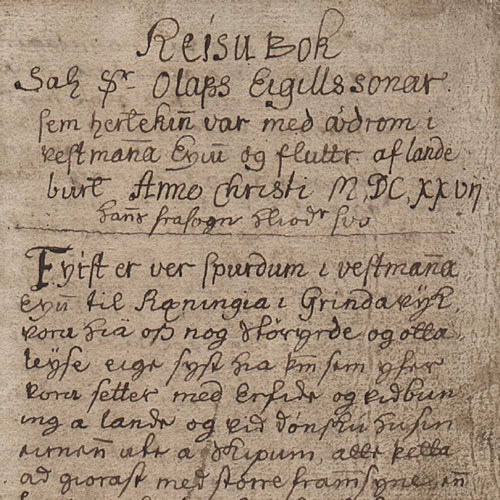 Reisu Bok
Sal: Sr. Olafs Eigillssonar
sem hertekiñ var med ődrom i
vestmaña Eyiũ og fluttr af lande
burt Anno Christi M,DC,XXVII
hans frasogn hliodr svo
Fyrst er ver spurdum i vestmaña
Eyũ til Ræningia i Grindavijk,
vora hia oss nog störyrde og otta
leyse eige syst hia þm̃ sem yfer
vora setter med Erfide og vidbun
ing a lande og vid dönsku husin
eirneñ ute a skipum, allt þetta
ad giorast med större framsyne eñ